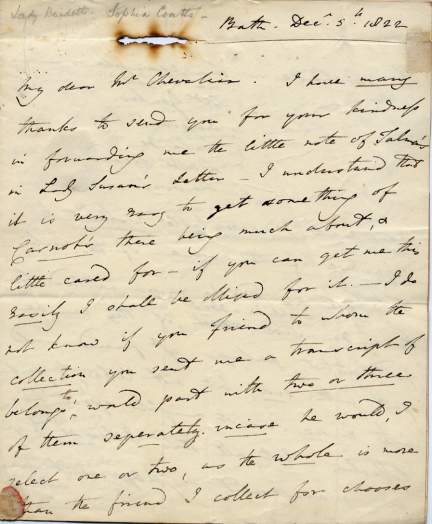 Lady Burdett - Sophia Coutts -
Bath. Decr. 5th 1822
My dear Mr Chevalier. I have many
thanks to send you for your kindness
in forwarding me the little note of Talma's
in Lady Susan's Letter - I understand that
it is very easy to get something of
Carnot's there being much about, &
little cared for - if you can get me this
easily I shall be obliged for it. - I do
not know if you friend to whom the
collection you sent me a transcript of
belongs to, would part with two or three
of them seperately. incase he would, I
select one or two, as the whole is more
than the friend I collect for chooses